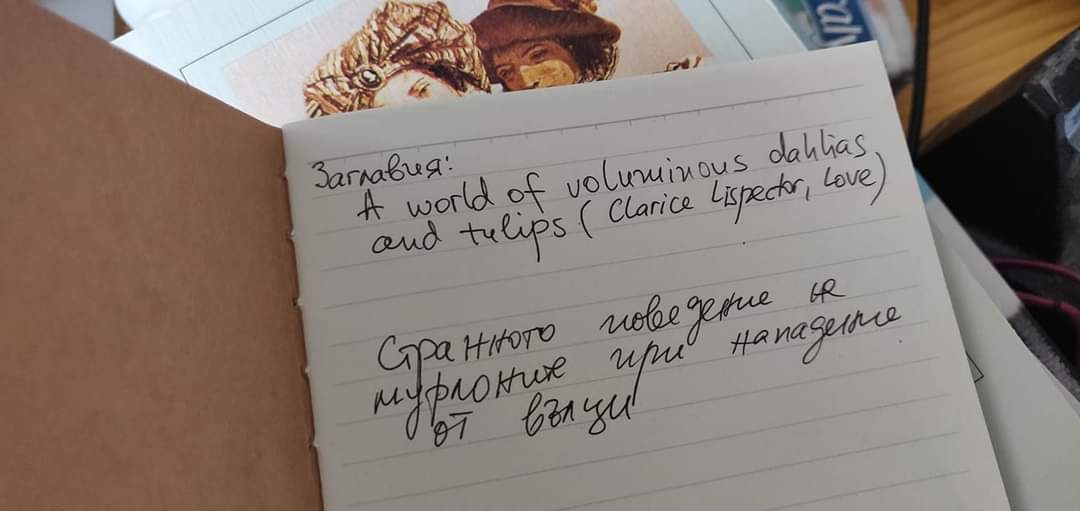 Заглавия:
A world of voluminous dahlias
and tulips (Clarice Lispector, Love)
Странното поведение на
муфлоните при нападение
от вълци